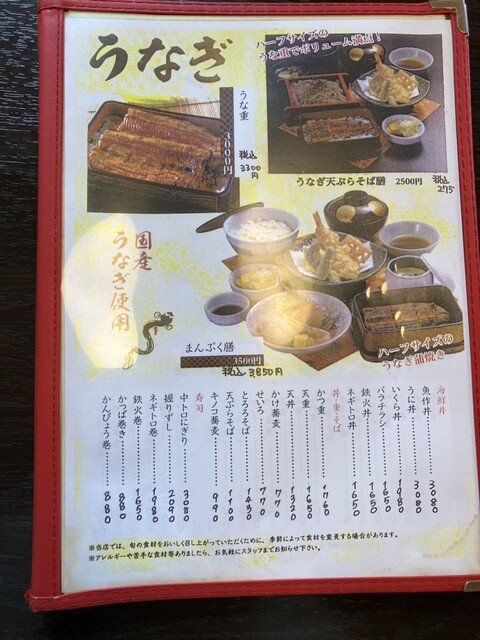 うなぎ
ハーフサイズの
うな重でボリューム満点！
うな重
3000円
税込
3300
円
うなぎ天ぷらそば膳 2500円
税込
国産
うなぎ使用
まんぷく膳
3500円
税込 3850円
ハーフサイズの
うなぎ蒲焼き
海鮮丼
魚作丼 3080
うに丼 3080
いくら丼 1980
バラチラシ 1650
鉄火丼 1650
ネギトロ丼 1650
丼・重・そば
かつ重 1760
天重 1650
天丼 1320
かけ蕎麦 770
せいろ 770
とろろそば 1430
天ぷらそば 1100
キノコ蕎麦 990
寿司
中トロにぎり 3080
握りずし 2090
ネギトロ巻 1980
鉄火巻 1650
かっぱ巻き 880
かんぴょう巻 880
※当店では、旬の食材をおいしく召し上がっていただくために、季節によって食材を変更する場合があります。
※アレルギーや苦手な食材等ありましたら、お気軽にスタッフまでお知らせ下さい。